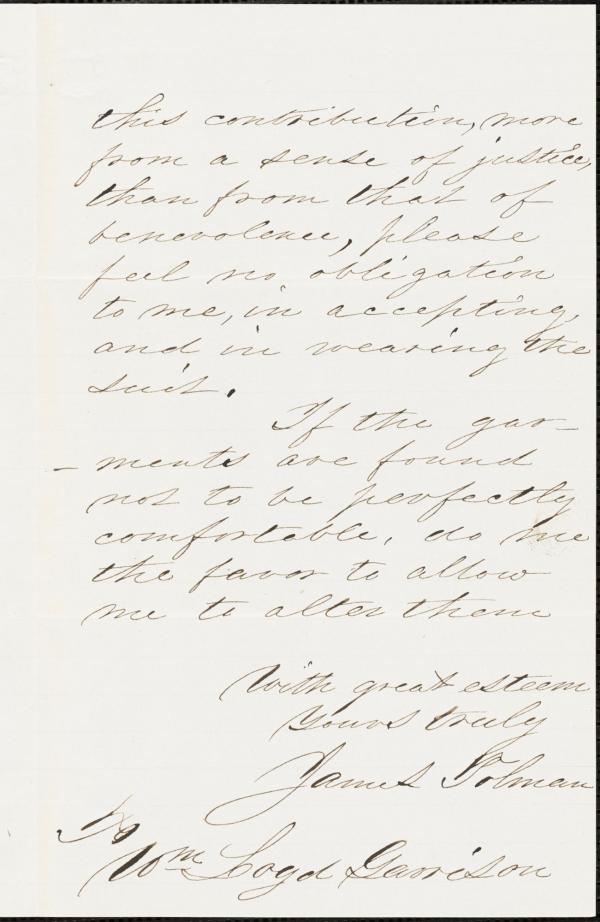 this contribution, more
from a sense of justice,
than from that of
benevolence, please
feel no obligation
to me, in accepting,
and in wearing the
suit.
If the gar-
- ments are found
not to be perfectly
comfortable, do me
the favor to allow
me to alter them
With great esteem
Yours truly
James Tolman
To
Wm Loyd Garrison